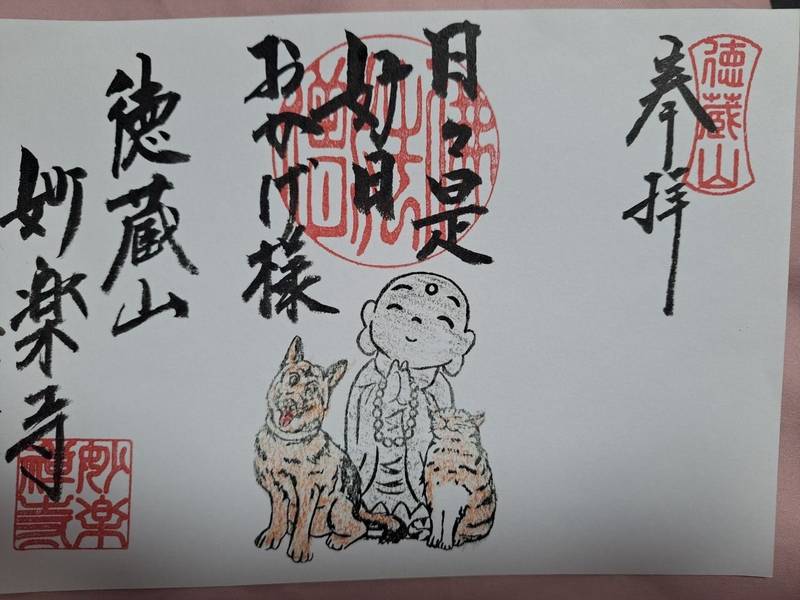 徳蔵山
奉拝
日々是
好日
おかげ様
佛法僧
徳蔵山
妙楽寺
妙楽
禅寺